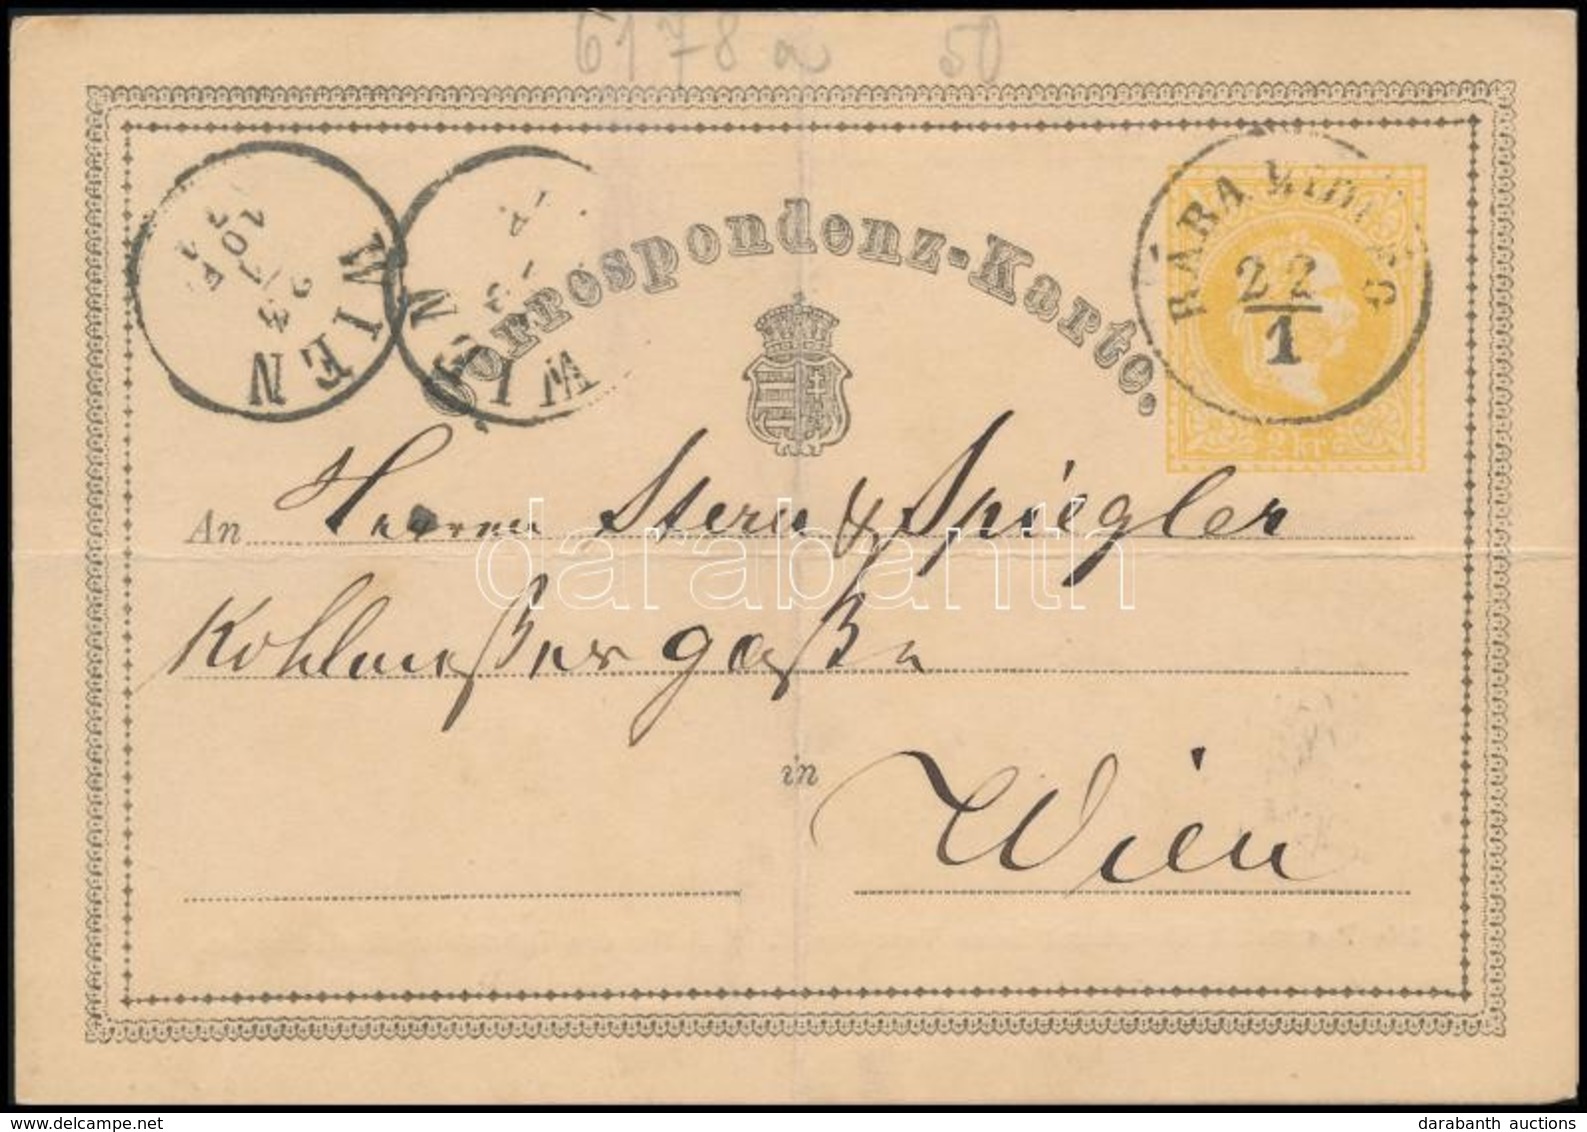 6178a 50
Correspondenz-Karte.
WIEN
23
10
WIEN
BÁRA
22
1
2 Kr
An Herren Stern & Spiegler
Kohlmeßergaße
in Wien
darabanth
darabanth auctions